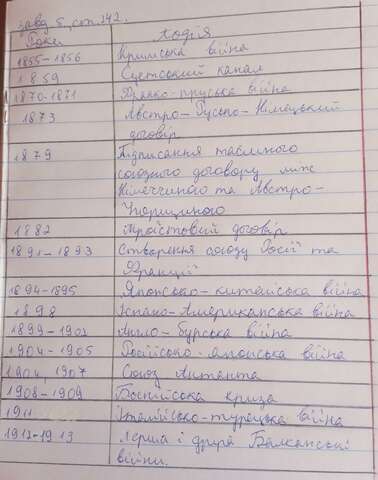 завд. 5, ст. 242.
Роки Подія
1855-1856 Кримська війна
1859 Суетський канал
1870-1871 Франко-пруська війна
1873 Австро-Русько-Німецький
договір
1879 Підписання таємного
союзного договору між
Німеччиною та Австро-
Угорщиною
1882 Троїстовий договір
1891-1893 Створення союзу Росії та
Франції
1894-1895 Японсько-китайська війна
1898 Іспано-Американська війна
1899-1902 Англо-бурська війна
1904-1905 Російсько-японська війна
1904, 1907 Союз Антанта
1908-1909 Боснійська криза
1911 Італійсько-турецька війна
1912-1913 Перша і друга Балканські
війни.